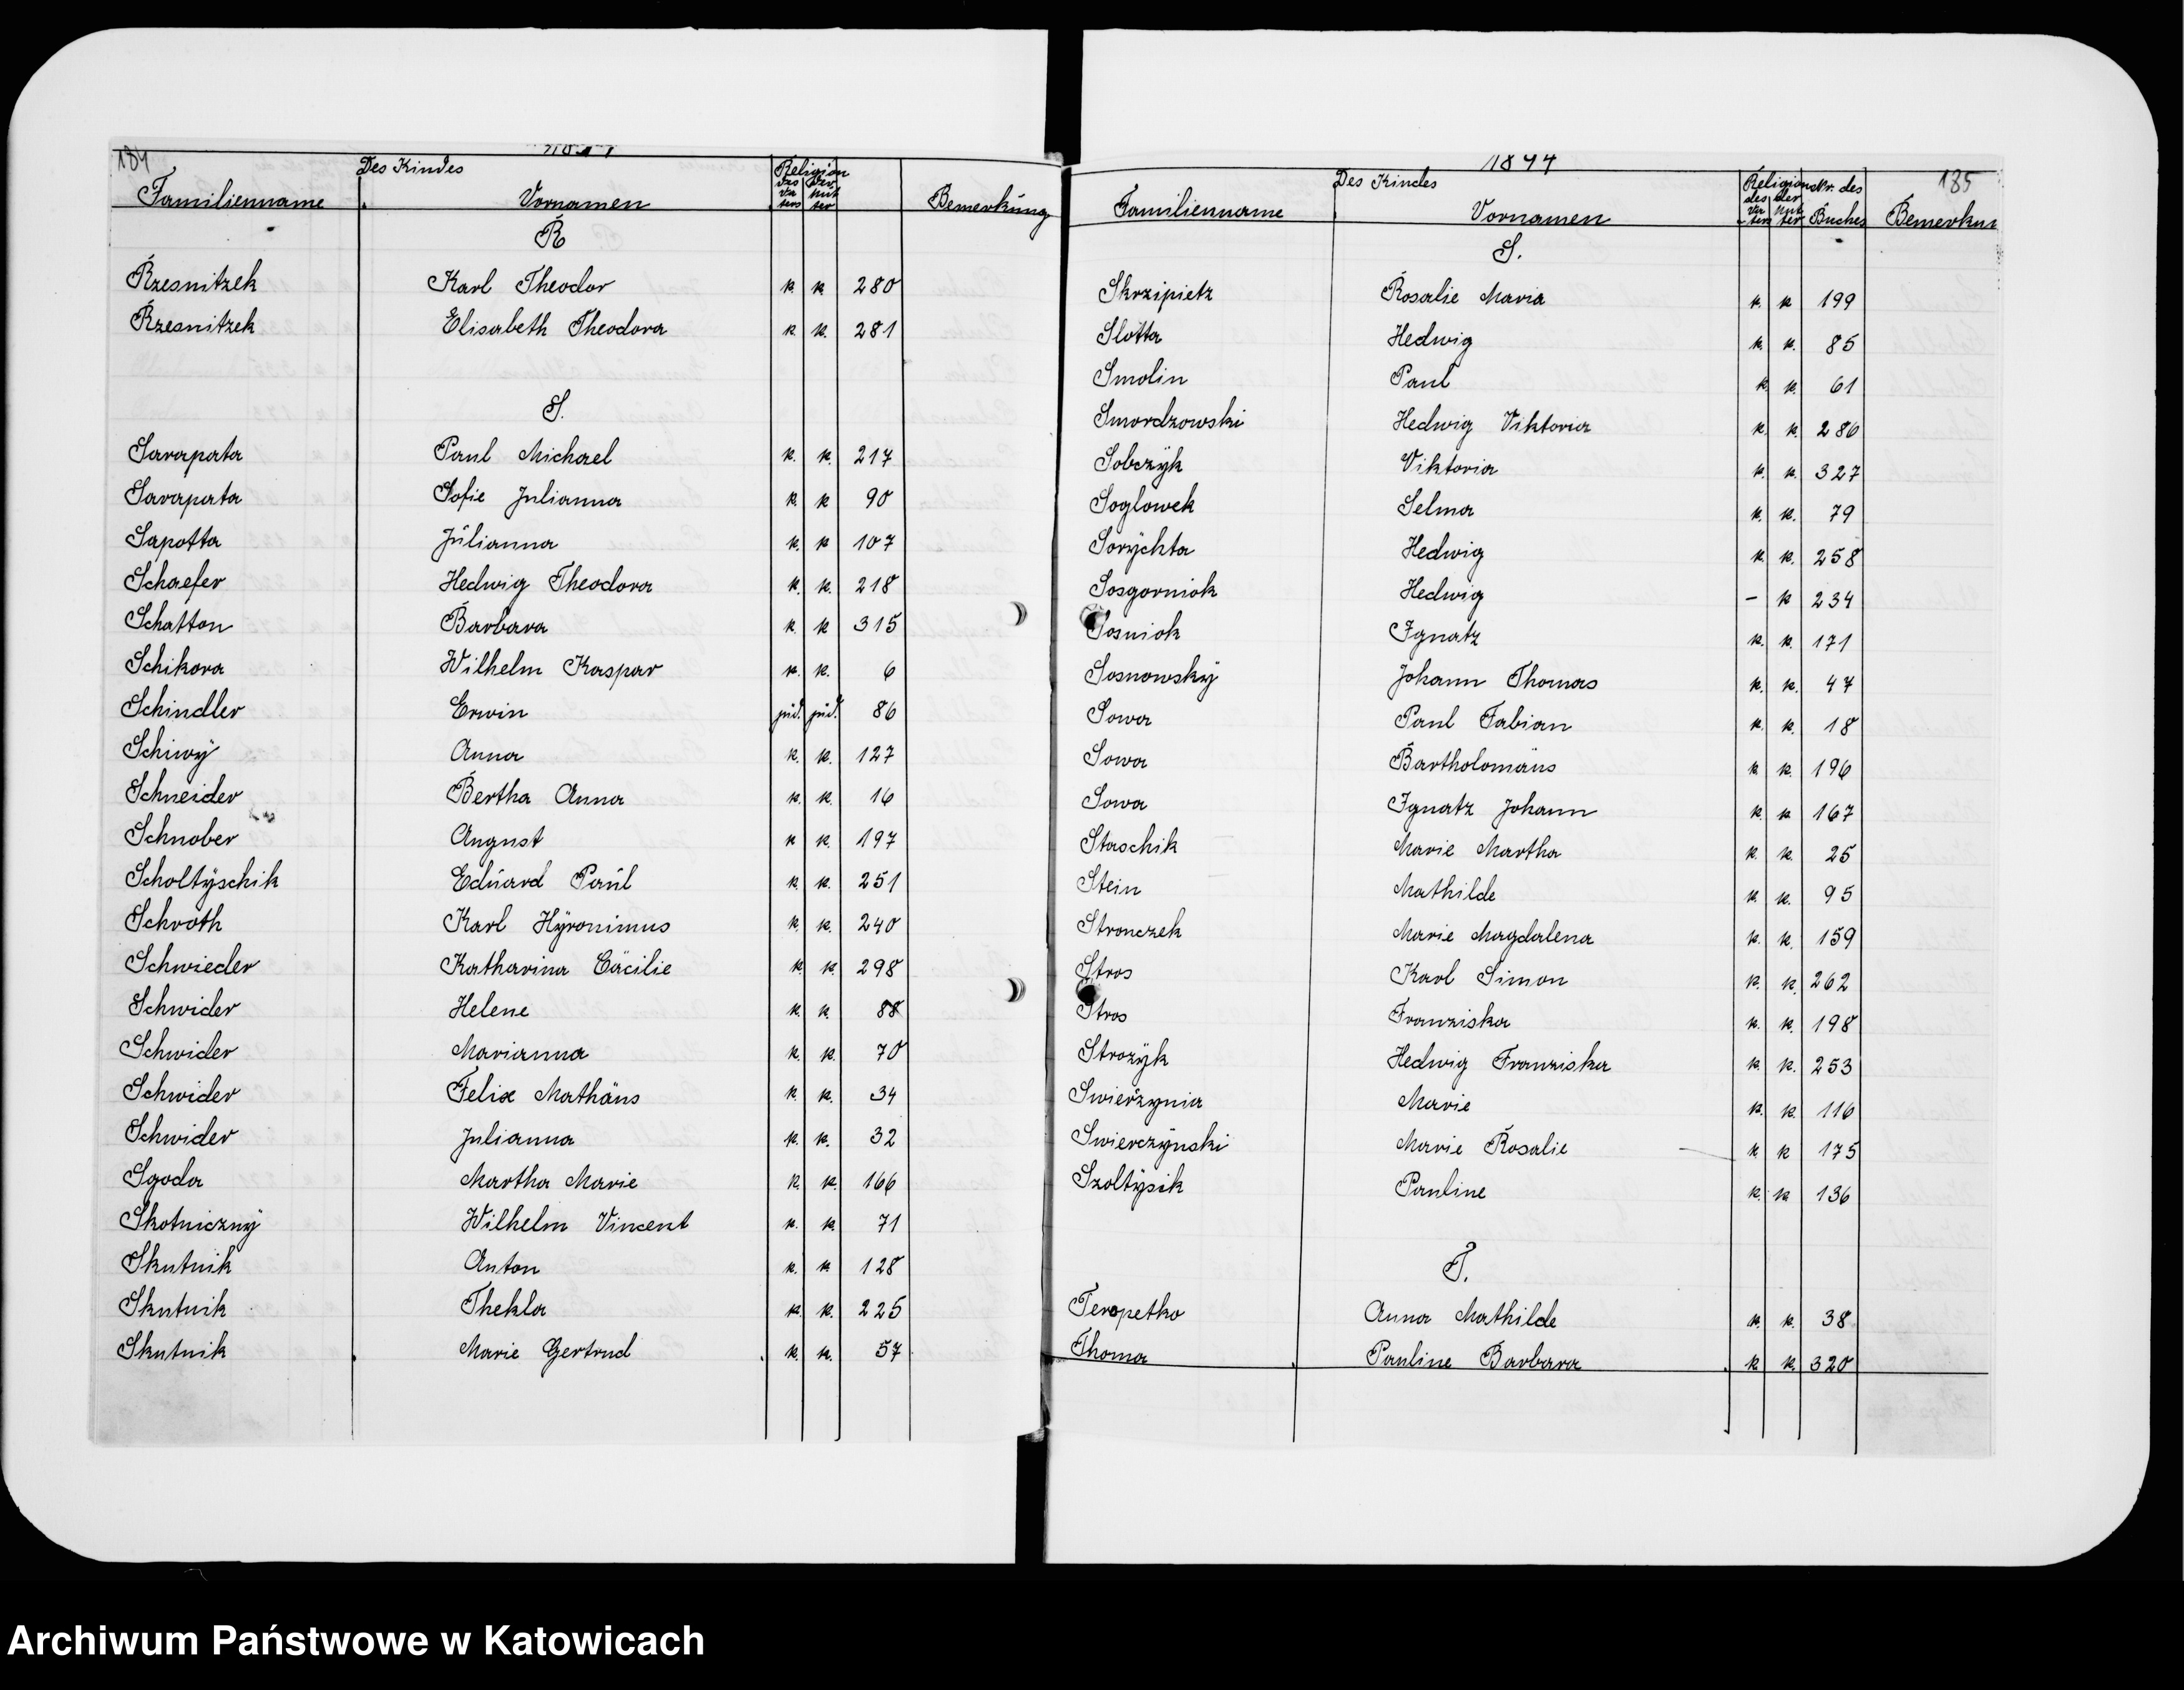 184
Des Kindes
Religion
Familienname Vornamen des Vaters der Mutter Bemerkung
R
Rzesnitzek Karl Theodor k. k 280
Rzesnitzek Elisabeth Theodora k k. 281
S.
Sarapata Paul Michael k. k. 217
Sarapata Sofie Julianna k. k 90
Sapotta Júlianna k. k 107
Schaefer Hedwig Theodora k. k. 218
Schatton Barbara k. k 315
Schikora Wilhelm Kaspar k. k. 6
Schindler Erwin jüd. jüd. 86
Schiwÿ Anna k. k. 127
Schneider Bertha Anna k. k. 16
Schnober August k k. 197
Scholtÿschik Edúard Paúl k. k. 251
Schroth Karl Hÿronimus k. k. 240
Schwieder Katharina Cäcilie k. k. 298
Schwider Helene k. k. 88
Schwider Marianna k. k. 70
Schwider Felix Mathäus k. k. 34
Schwider Julianna k. k. 32
Sgoda Martha Marie k. k. 166
Skotniczný Wilhelm Vincent k. k. 71
Skutnik Anton k. k 128
Skutnik Thekla k. k. 225
Skutnik Marie Gertrud k. k. 57
1894 185
Des Kindes Religion Nr. des
Familienname Vornamen des Vaters der Mutter Buches Bemerkun
S.
Skrzipietz Rosalie Maria k. k 199
Slotta Hedwig k. k. 85
Smolin Paul k k. 61
Smordzowski Hedwig Viktoria k. k. 286
Sobczÿk Viktoria k. k. 327
Soglowek Selma k. k. 79
Sorÿchta Hedwig k k. 258
Sosgorniok Hedwig – k 234
Sosniok Ignatz k. k. 171
Sosnowskÿ Johann Thomas k. k. 47
Sowa Paul Fabian k. k. 18
Sowa Bartholomäus k k. 196
Sowa Ignatz Johann k. k 167
Staschik Marie Martha k. k. 25
Stein Mathilde k k. 95
Stronczek Marie Magdalena k. k. 159
Stros Karl Simon k. k. 262
Stros Franziska k. k. 198
Strozÿk Hedwig Franziska k. k. 253
Swierzynia Marie k. k. 116
Swierczÿnski Marie Rosalie k k 175
Szoltÿsik Pauline k. k 136
T.
Teropetko Anna Mathilde k. k. 38
Thoma Pauline Barbara k k. 320
Archiwum Państwowe w Katowicach